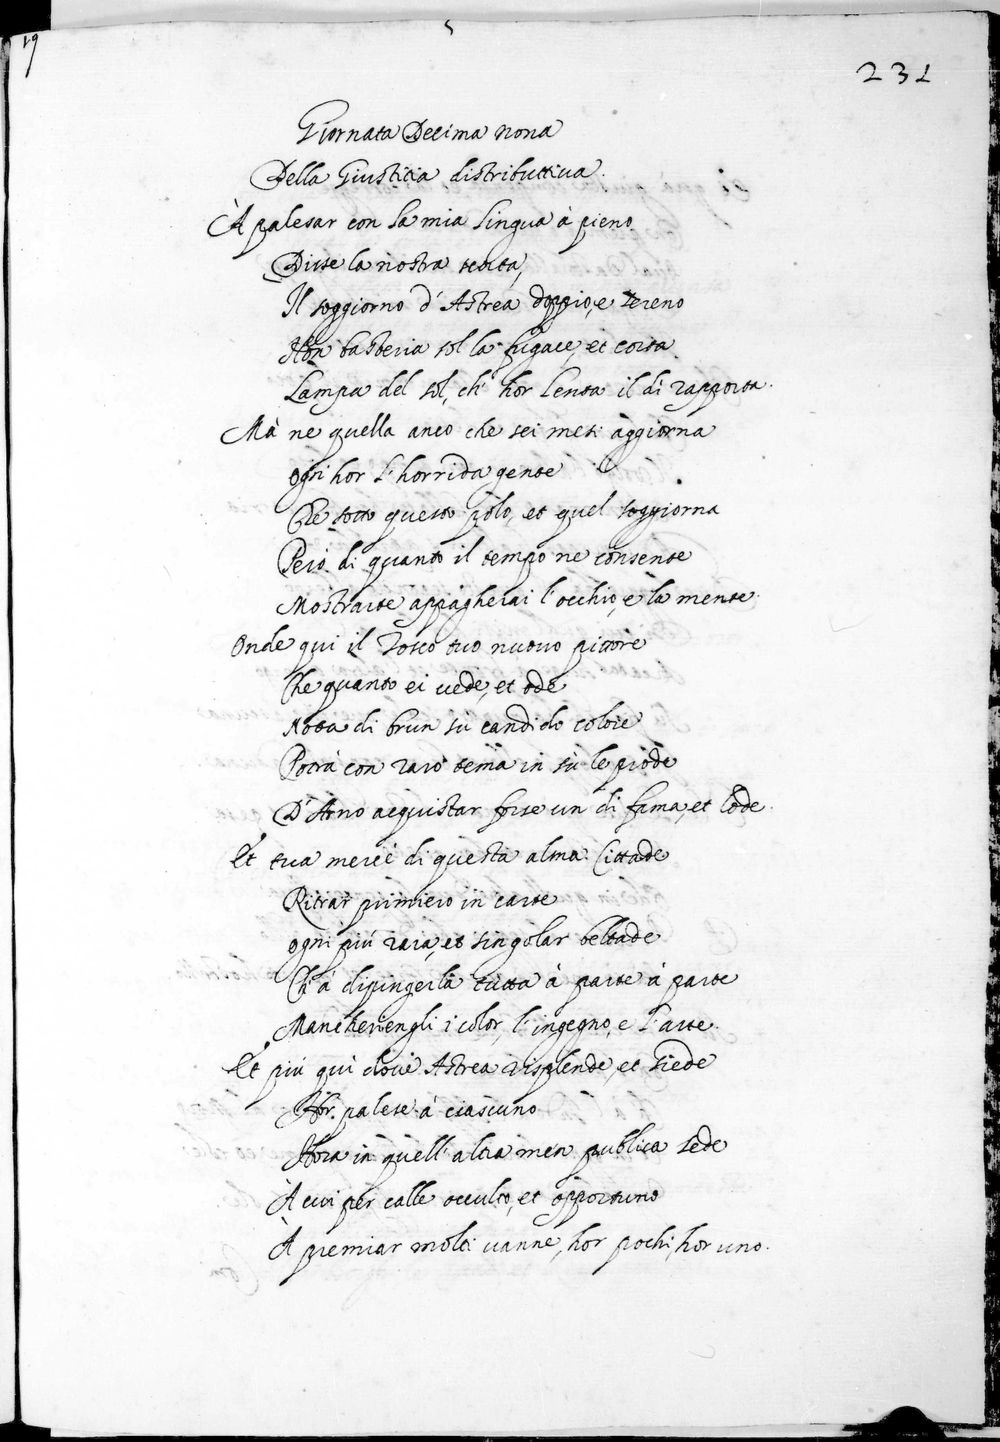 19
231
Giornata Decima nona
Della Giustitia distributtiua.
À palesar con la mia lingua à pieno
Disse la nostra scorta,
Il soggiorno d'Astrea doppio, e sereno
Non basteria sol la fugace, et corta
Lampa del sol, ch'hor lenta il dì rapporta.
Mà ne quella anco che sei mesi aggiorna
ogni hor l'horrida gente
Che sotto questo polo, et quel soggiorna
Però di quanto il tempo ne consente
Mostrarte appagherai l'occhio, e la mente.
Onde qui il Tosco tuo nuouo pittore
Che quanto ei uede, et ode
Nota di brun sù candido colore
Potrà con raro tema in sù le prode
D'Arno acquistar forse un di fama, et lode.
Et tua mercè di questa alma Cittade
Ritrar primiero in carte
ogni più rara, et singolar beltade
Ch'à dipingerla tutta à parte à parte
Mancheriengli i color, l'ingegno, e l'arte.
Et più qui doue Astrea risplende, et siede
Hor palese à ciascuno
Hora in quell'altra men publica sede
À cui per calle occulto, et opportuno
À premiar molti uanne, hor pochi, hor uno.